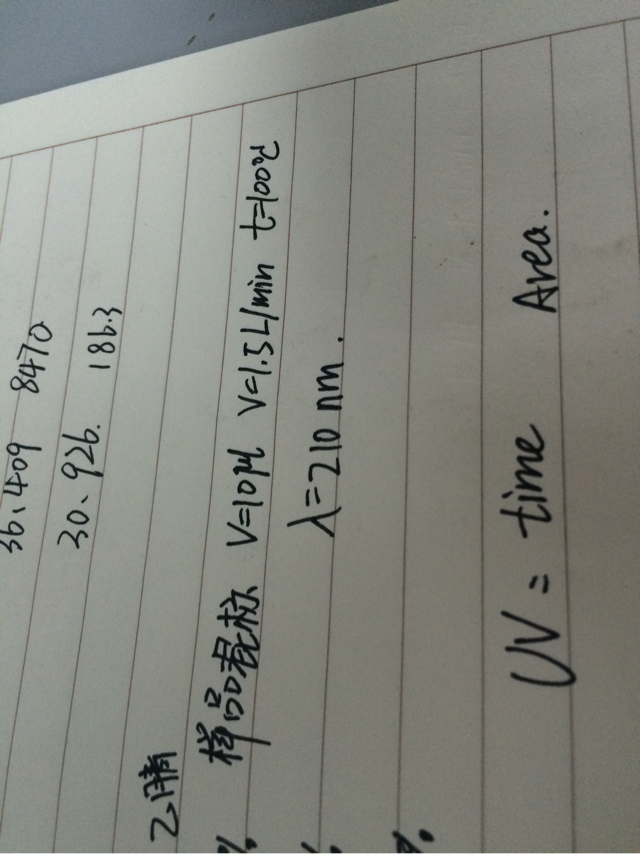 36.409 8470
30.926. 186.3
乙腈
% 样品混标 V=10μl V=1.5L/min t=100℃
% λ=210 nm.
%
UV = time Area.